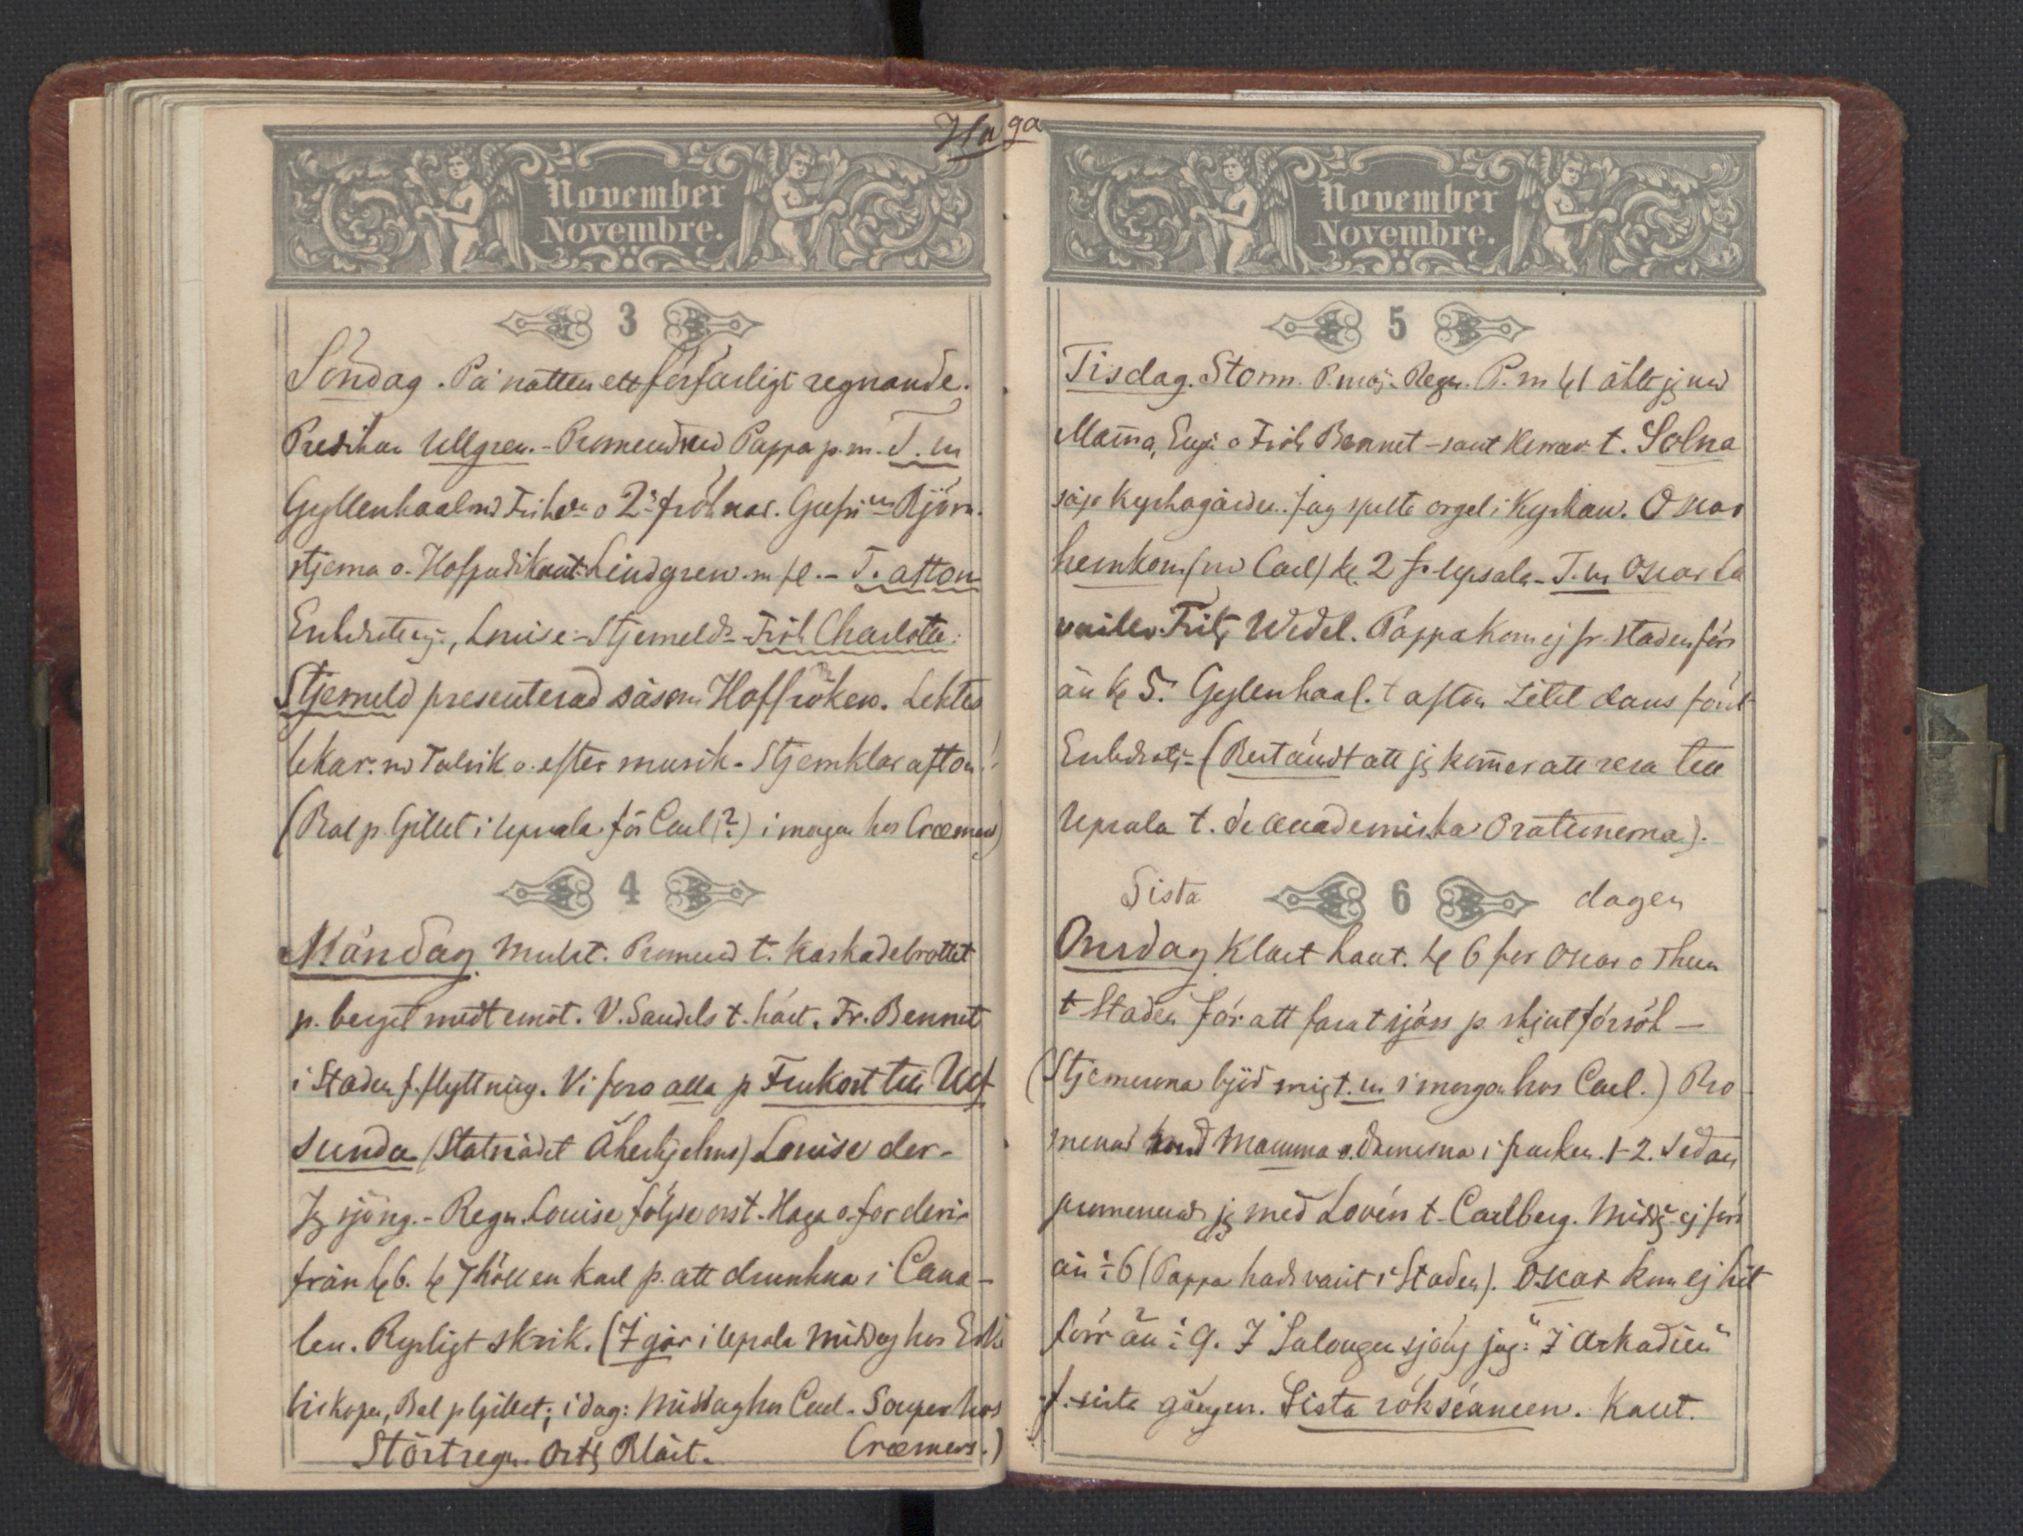 Haga
November
Novembre.
3
Söndag. På natten ett förfärligt regnande.
Predikan Ullgren. - Promenad med Pappa p.m. T. m
Gyllenhaal md Frih:a o 2:e fröknar. Grefvin Björn-
stjerna o. Hofpredikant Lindgren m fl. - T. afton
Enkedrottng., Louise - Stjerneld - Frök Charlotte
Stjerneld presenterad såsom Hoffröken. Lektes
lekar. md Talrik o. efter musik - Stjernklar afton!
(Bal p. Gillet i Upsala för Carl (?) i morgon hos Cræmers)
4
Måndag Mulet. Promend t. Kaskadebrottet
p. berget midt emot. V. Sandels t. häst. Fr. Bennet
i Staden f. flyttning. Vi foro alla p Frukost till Ulf
sunda (Statrådet Åkerhjelms) Louise der -
Jg sjöng. - Regn. Louise följde oss t. Haga o. for deri-
från kl 6. kl 7 höll en karl p. att drunkna i Cana-
len. Rysligt skrik. (I går i Upsala Middag hos Erke
biskopen, Bal p Gillet; i dag: Middag hos Carl - Souper hos
Cræmers.)
Störtregn. Blåst.
November
Novembre.
5
Tisdag. Storm. P. m. Regn. P. m kl 1 åkte jg md
Mamma, Eug: o Frök Bennet - samt Herrar t. Solna
såg Kyrkogården. Jag spelte orgel i Kyrkan. Oscar
hemkom (md Carl) kl. 2 fr. Upsala - T. m Oscar La
vaillo Fritz Wedel. Pappa kom ej fr. staden förr
än kl 5. Gyllenhaal. t afton Litet dans förut
Enkedrotg - (Bestämdt att jg kommer att resa till
Upsala t. de accademiska Orationerna).
Sista
6
dagen
Onsdag Klart kallt. kl 6 for Oscar o Thun
t Staden för att fara t sjöss p. skjutförsök -
(Stjernerna bjöd mig t. m i morgon hos Carl.) Pro-
menad med Mamma o. damerna i parken. 1-2. Sedan
promenad jg med Lovén t. Carlberg. Middg ej förr
än 1/2 6 (Pappa hade varit i Staden). Oscar kom ej hit
förr än 1/2 9. I Salongen sjöng jag: "I Arkadien"
f. sista gången. Sista röksèancen. Kallt.